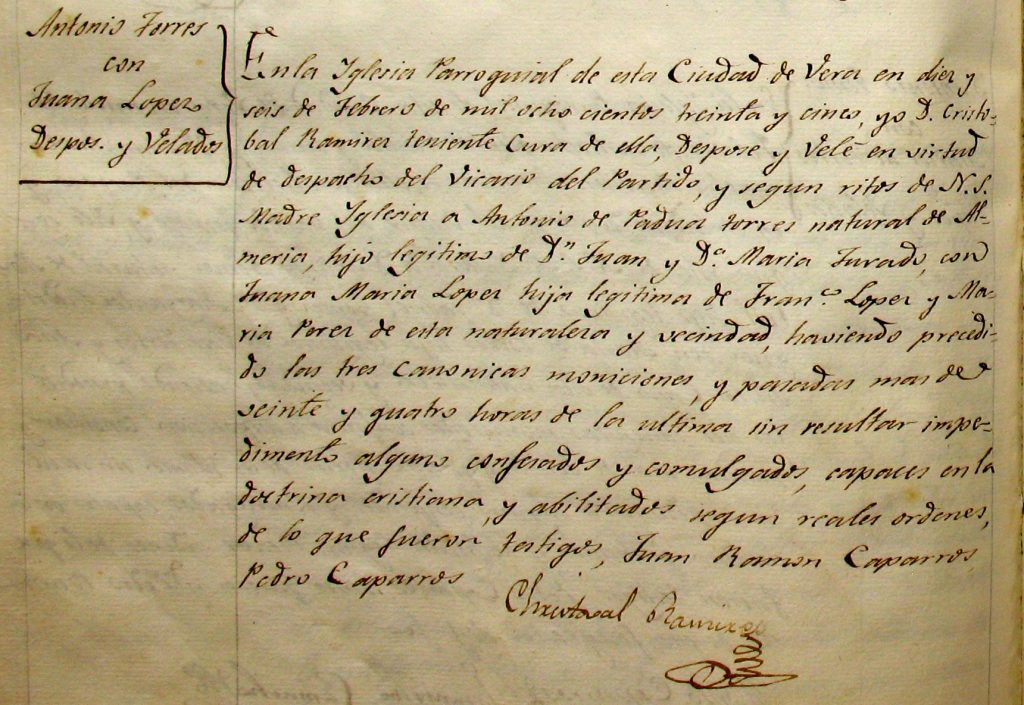 Antonio Torres
con
Juana Lopez
Despos. y Velados
En la Yglesia Parroquial de esta Ciudad de Vera en diez y
seis de Febrero de mil ocho cientos treinta y cinco, yo D. Cristo-
bal Ramirez teniente Cura de ella, Despose y Velé en virtud
de despacho del Vicario del Partido, y segun ritos de N. S.
Madre Yglesia a Antonio de Padua torres natural de Al-
meria, hijo legitimo de D.n Juan y D.a Maria Jurado, con
Juana Maria Lopez hija legitima de Fran.co Lopez y Ma-
ria Perez de esta naturaleza y vecindad, haviendo precedi-
do las tres canonicas moniciones, y pasadas mas de
veinte y quatro horas de la ultima sin resultar impe-
dimento alguno confesados y comulgados, capaces en la
doctrina cristiana, y abilitados segun reales ordenes,
de lo que fueron testigos, Juan Ramon Caparros,
Pedro Caparros
Christoval Ramirez